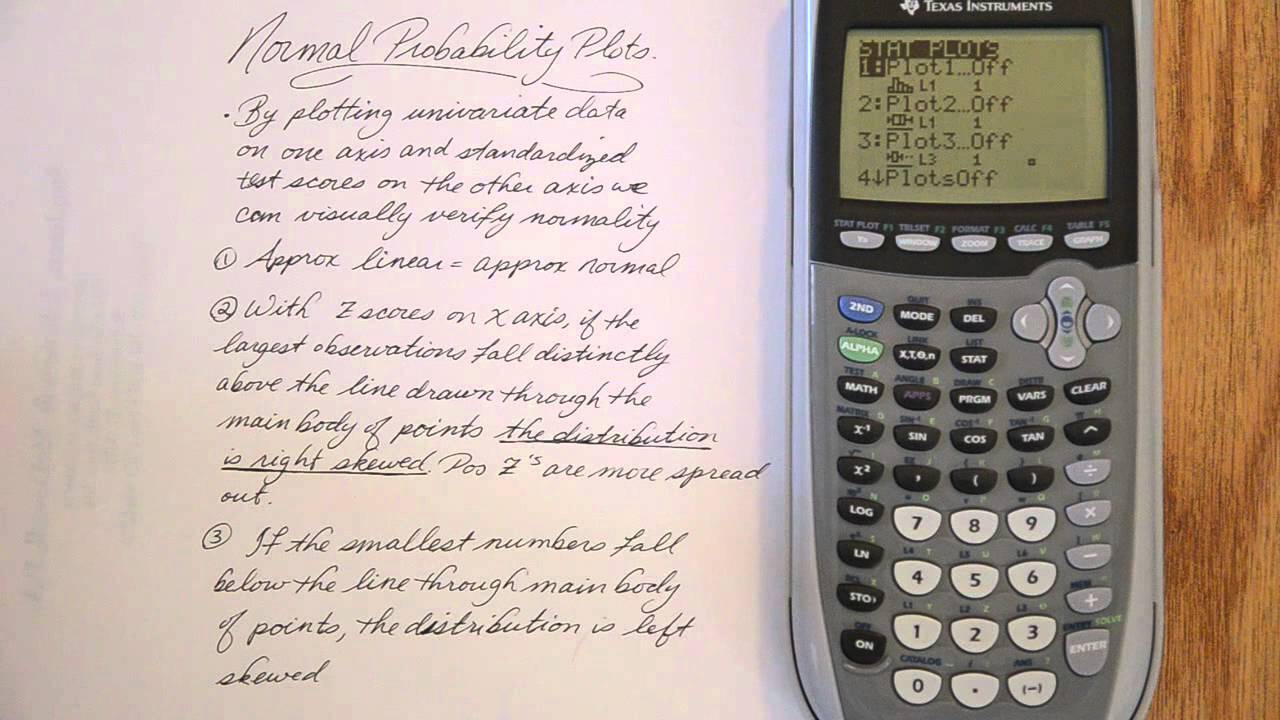 Normal Probability Plots.
· By plotting univariate data
on one axis and standardized
test scores on the other axis we
can visually verify normality
① Approx linear = approx normal
② With Z scores on X axis, if the
largest observations fall distinctly
above the line drawn through the
main body of points the distribution
is right skewed. Pos Z's are more spread
out.
③ If the smallest numbers fall
below the line through main body
of points, the distribution is left
skewed
TEXAS INSTRUMENTS
STAT PLOTS
1:Plot1…Off
L1 1
2:Plot2…Off
L1 1
3:Plot3…Off
L3 1
4↓PlotsOff
STAT PLOT F1 TBLSET F2 FORMAT F3 CALC F4 TABLE F5
Y= WINDOW ZOOM TRACE GRAPH
QUIT INS
2ND MODE DEL
A-LOCK LINK LIST
ALPHA X,T,Θ,n STAT
TEST A ANGLE B DRAW C DISTR
MATH APPS PRGM VARS CLEAR
MATRIX D SIN⁻¹ E COS⁻¹ F TAN⁻¹ G π H
x⁻¹ SIN COS TAN ^
√ I EE J { K } L e M
x² , ( ) ÷
10ˣ N u O v P w Q [ R
LOG 7 8 9 ×
eˣ S L4 T L5 U L6 V ] W
LN 4 5 6 −
RCL X L1 Y L2 Z L3 θ MEM "
STO› 1 2 3 +
OFF ENTRY SOLVE
ON ENTER
CATALOG ⎵ i : ANS ?
0 . (−)